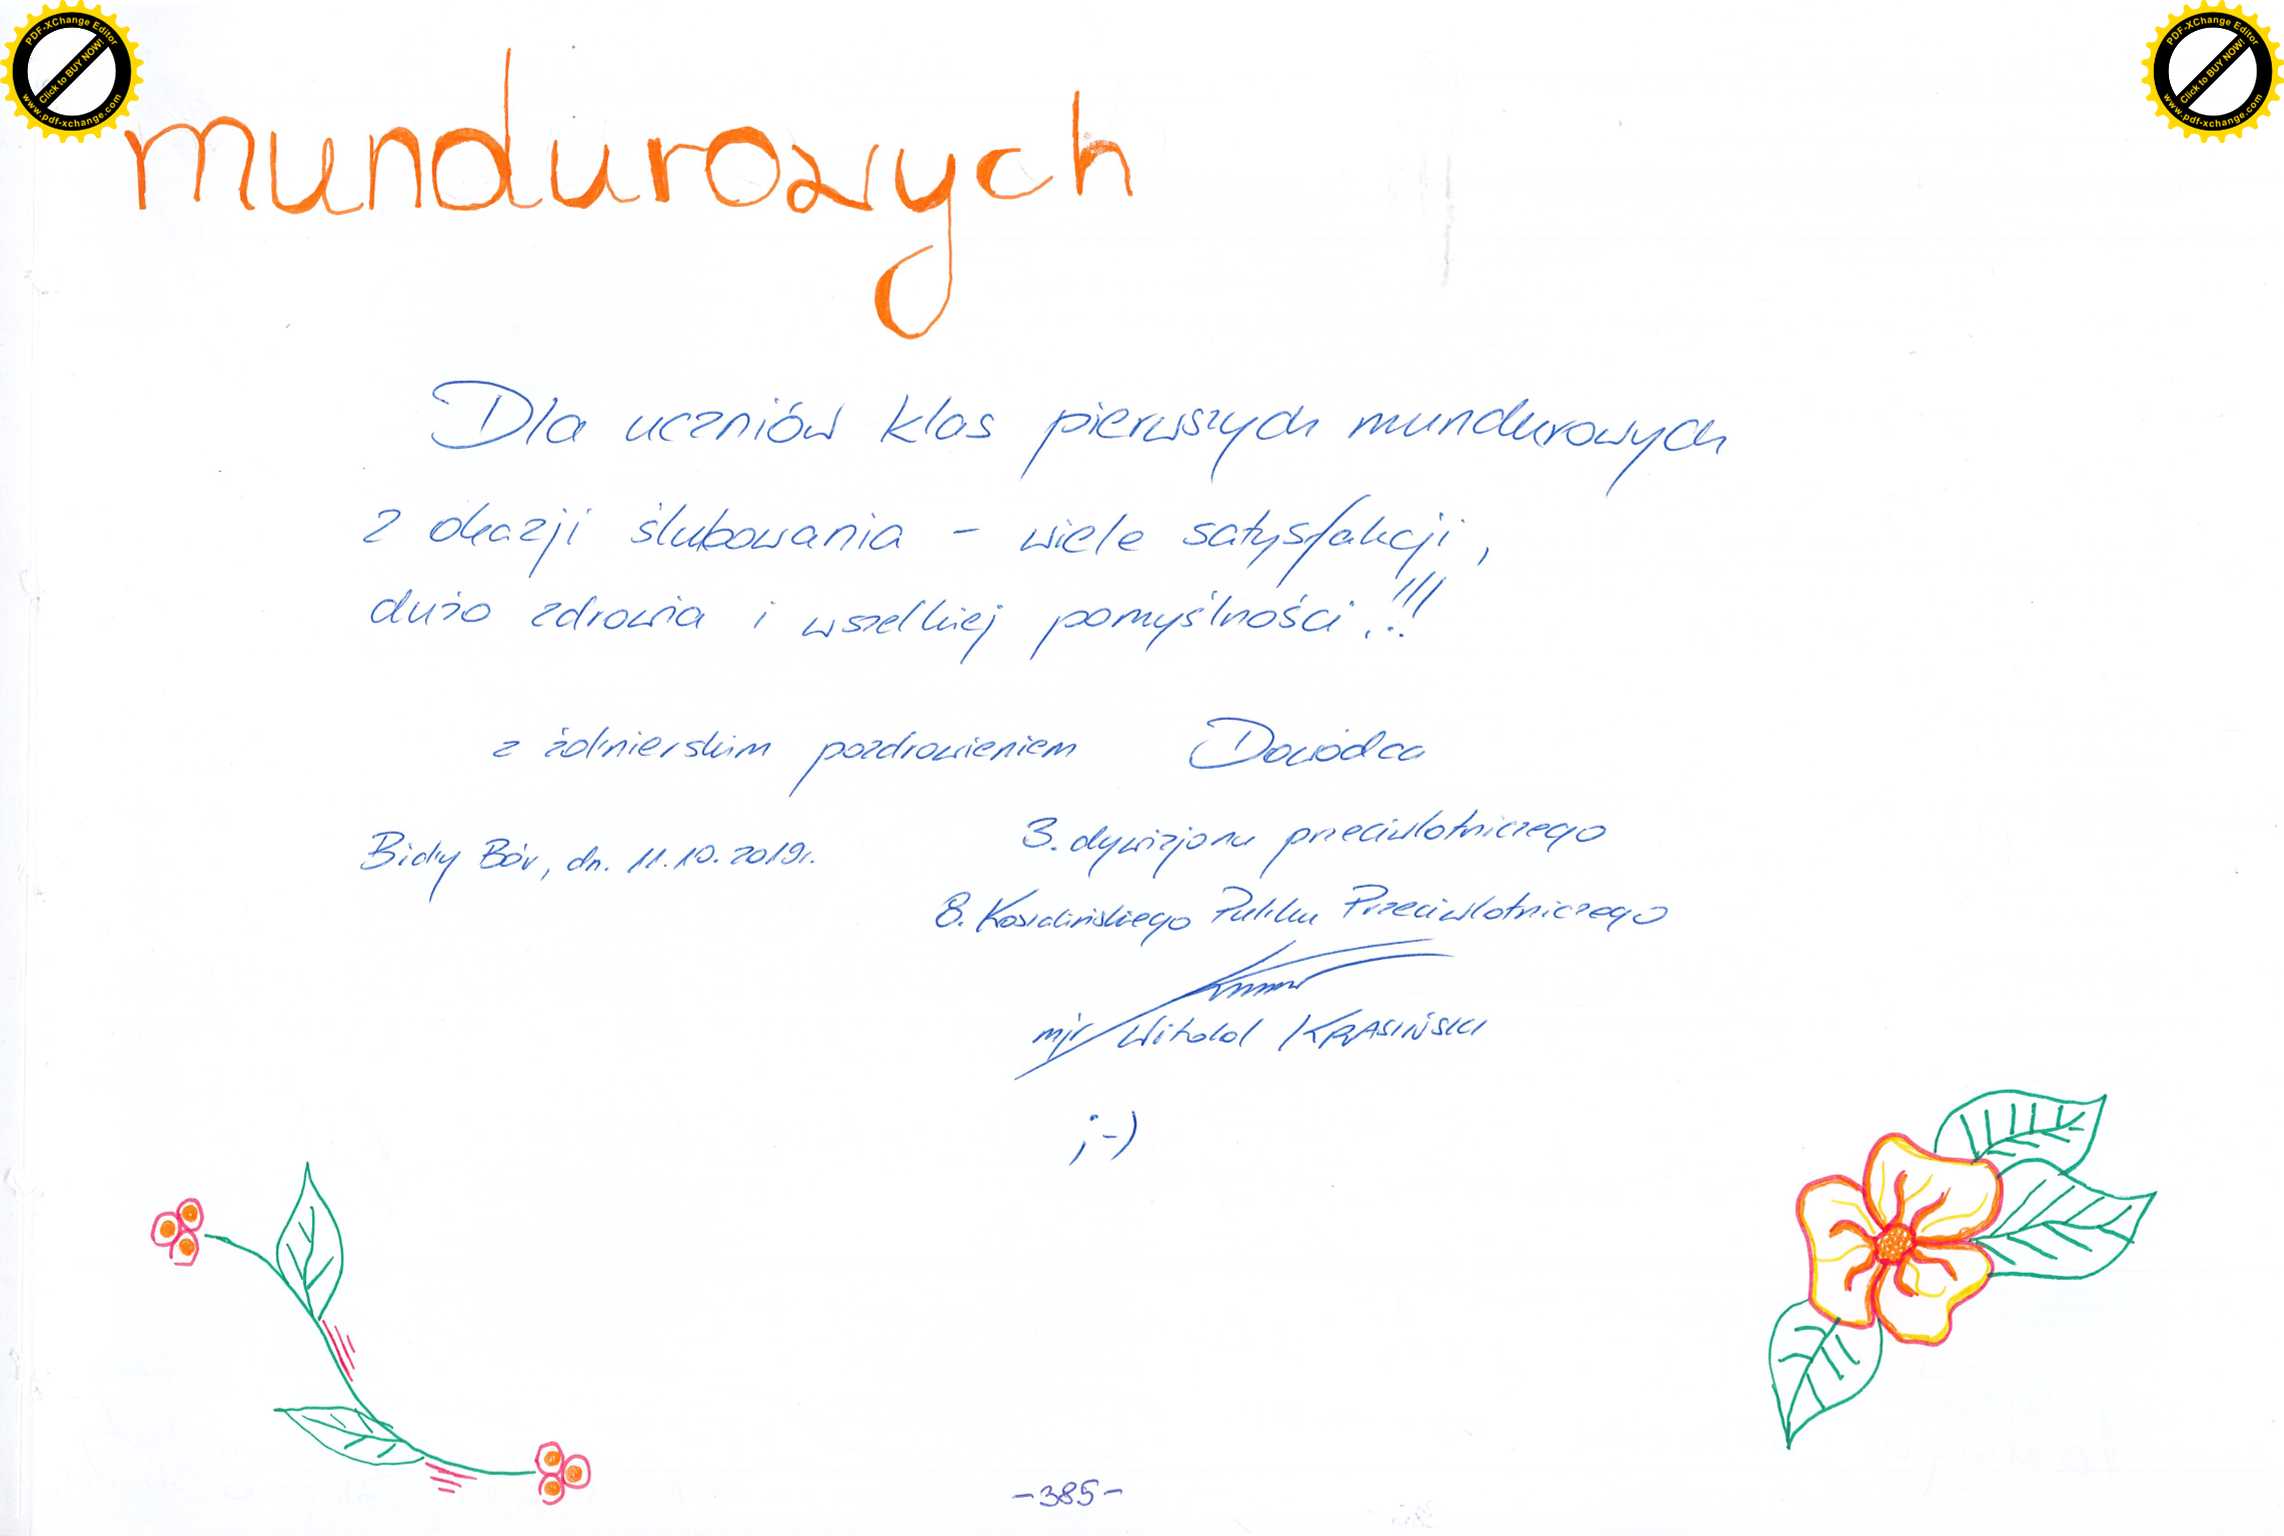 PDF-XChange Editor
Click to BUY NOW!
www.pdf-xchange.com
PDF-XChange Editor
Click to BUY NOW!
www.pdf-xchange.com
mundurowych
Dla uczniów klas pierwszych mundurowych
z okazji ślubowania – wiele satysfakcji,
dużo zdrowia i wszelkiej pomyślności..!!!
z żołnierskim pozdrowieniem Dowódca
3. dywizjonu przeciwlotniczego
Biały Bór, dn. 11.10.2019r.
8. Koszalińskiego Pułku Przeciwlotniczego
mjr Witold KRASIŃSKI
;-)
-385-